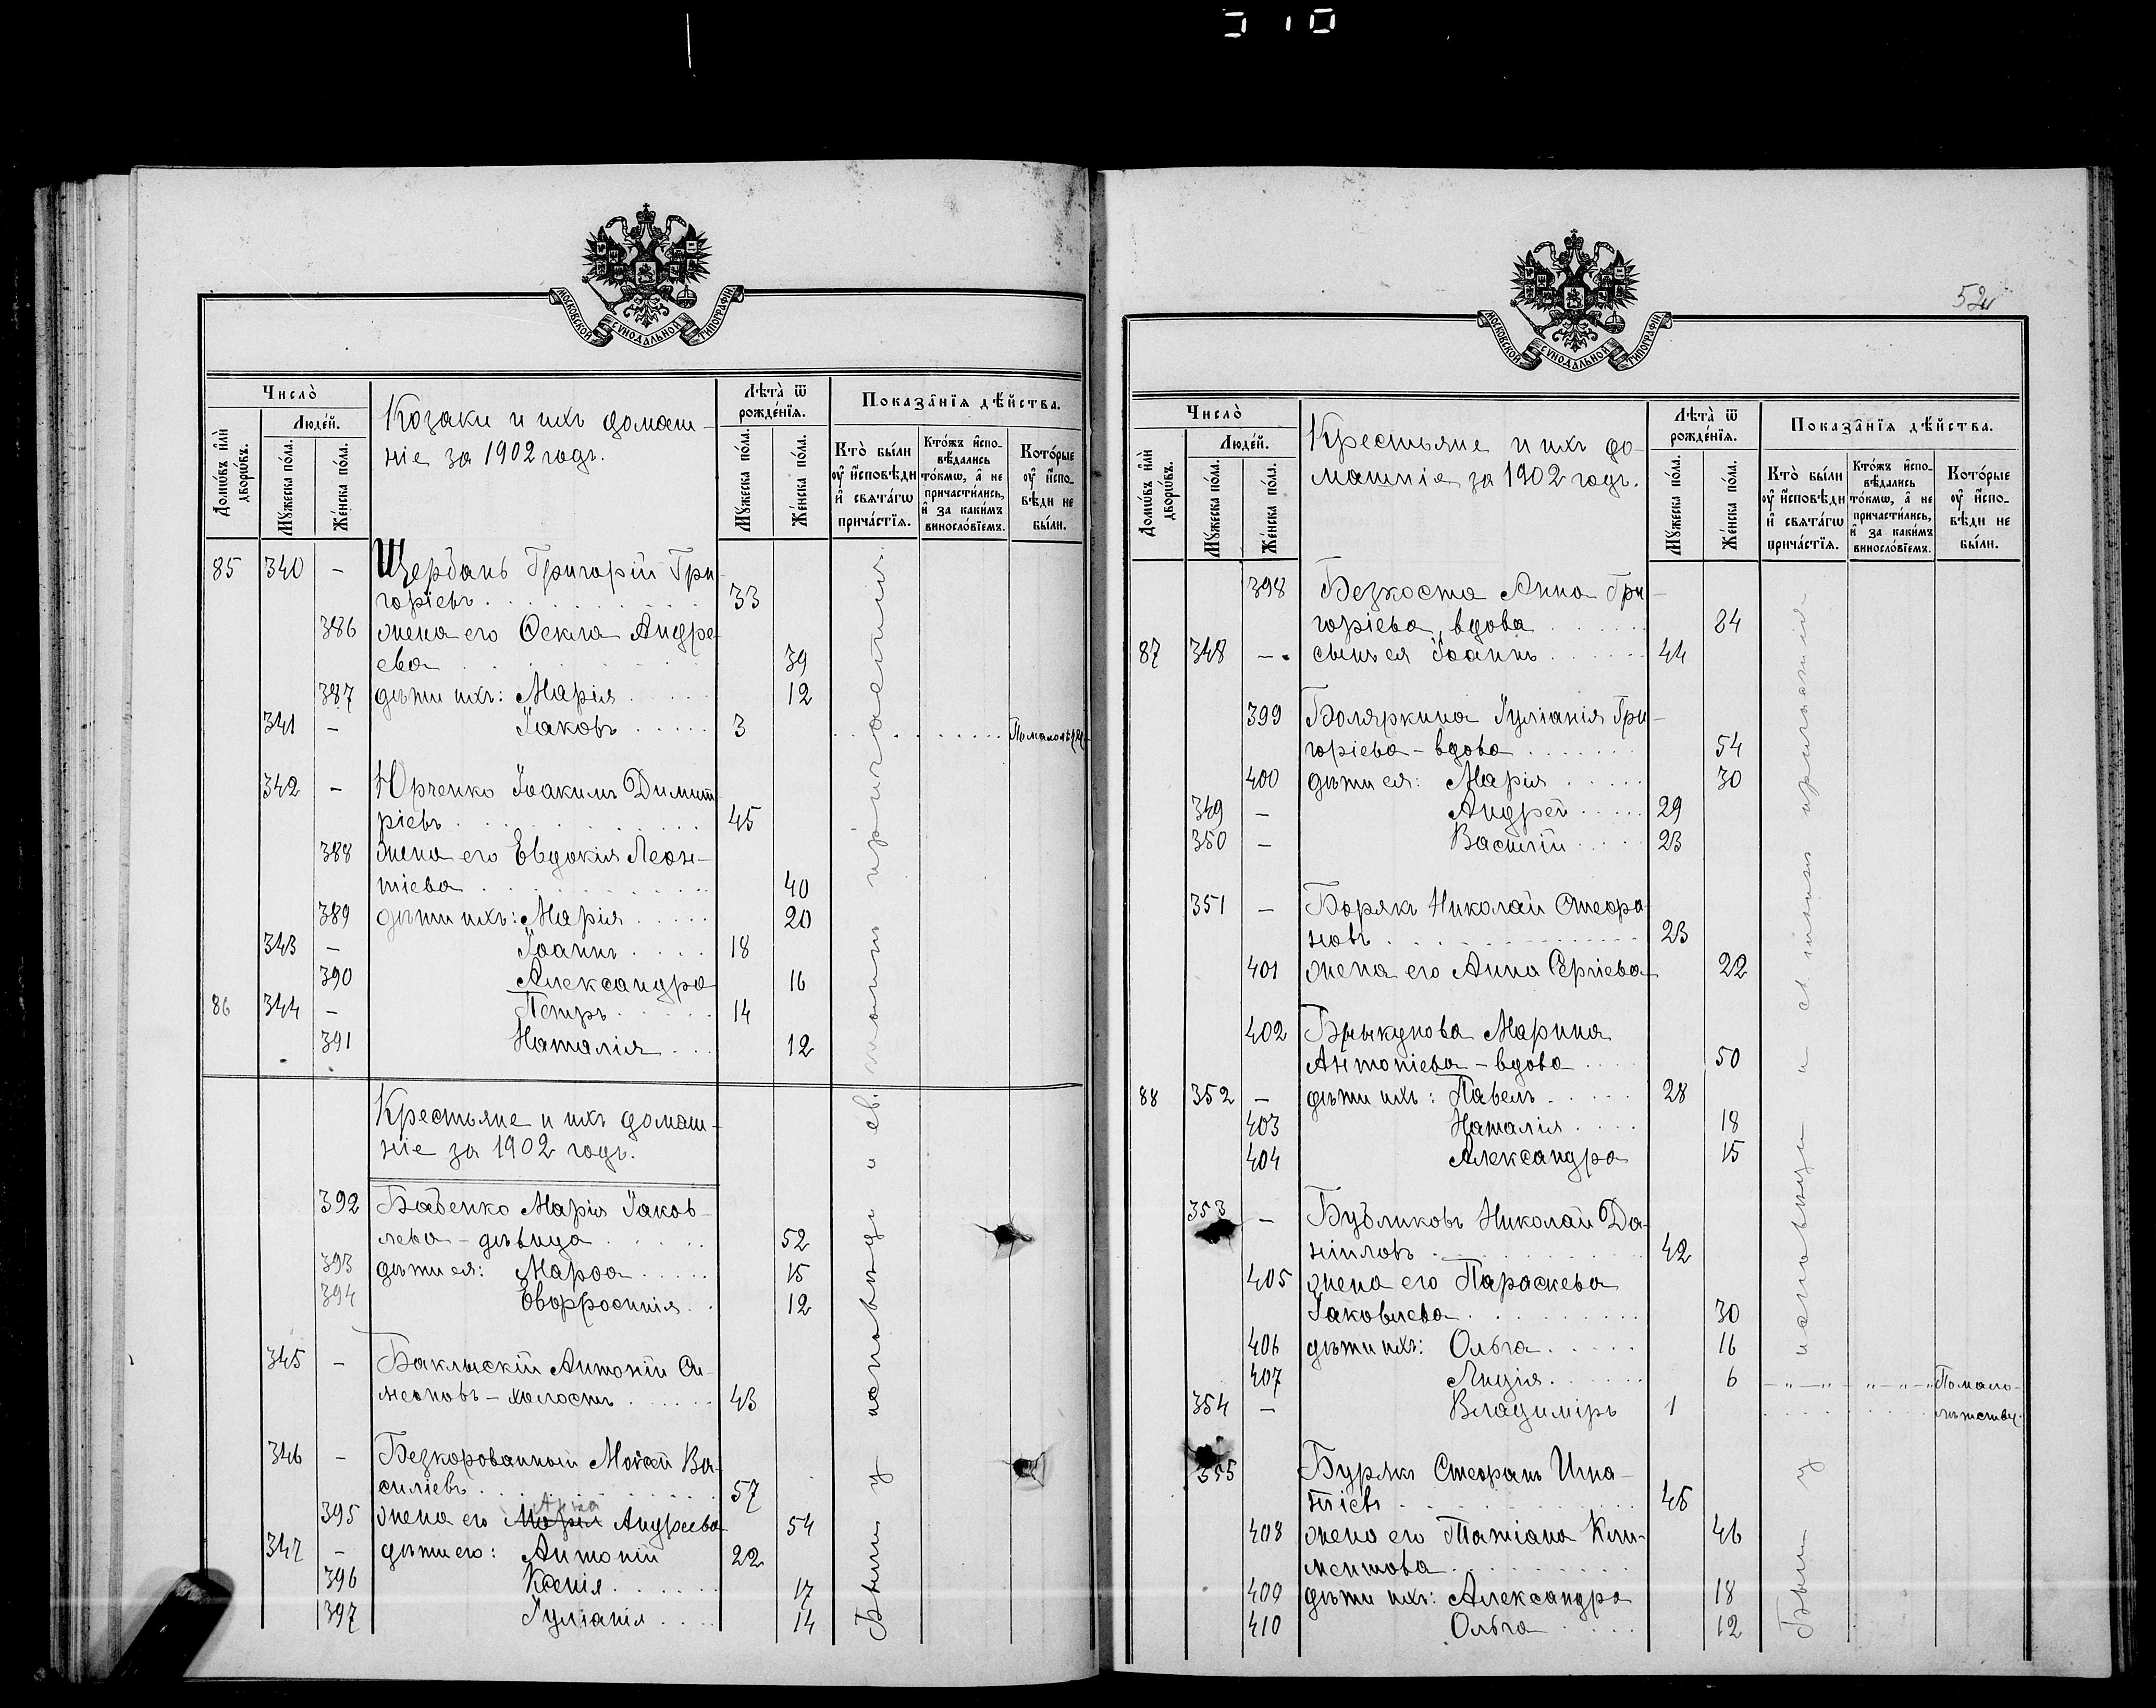 МОСКОВСКОЙ СѴНОДАЛЬНОЙ ТИПОГРАФІИ
Число̀
Домѡ́въ и҆лѝ дворѡ́въ.
Люде́й.
Мꙋ́жеска по́ла.
Же́нска по́ла.
Козаки и ихъ домаш-
ніе за 1902 годъ.
Лѣта̀ ѿ рожде́нїѧ.
Мꙋ́жеска по́ла.
Же́нска по́ла.
Показа̑нїѧ дѣ́йства.
Кто̀ бы́ли оу҆ и҆сповѣ́ди и҆ свѧта́гѡ прича́стїѧ.
Кто́жъ и҆спо- вѣ́дались то́кмѡ, а҆ не причасти́лись, и҆ за каки́мъ винослові́емъ.
Кото́рые оу҆ и҆спо- вѣ́ди не бы́ли.
85 340 - Щербань Григорій Гри-
горіевъ 33
386 жена его Ѳекла Андре-
ева 39
387 дѣти ихъ: Марія 12
341 - Іаковъ 3
342 - Юрченко Іоакимъ Димит-
ріевъ 45
388 жена его Евдокія Леон-
тіева 40
389 дѣти ихъ: Марія 20
343 - Іоаннъ 18
390 Александра 16
86 344 - Петръ 14
391 Наталія 12
Крестьяне и ихъ домаш-
ніе за 1902 годъ.
392 Бабенко Марія Іаков-
лева - дѣвица 52
393 дѣти ея: Марѳа 15
394 Евфросинія 12
345 - Баклыскій Антоній Си-
меоновъ - холостъ 43
346 - Безкорованный Моѵсей Ва-
силіевъ 57
Анна
395 жена его Марія Андреева 54
347 - дѣти его: Антоній 22
396 Ксенія 17
397 Іуліанія 14
Были у исповѣди и св. таинъ причастія
52
МОСКОВСКОЙ СѴНОДАЛЬНОЙ ТИПОГРАФІИ
Число̀
Домѡ́въ и҆лѝ дворѡ́въ.
Люде́й.
Мꙋ́жеска по́ла.
Же́нска по́ла.
Крестьяне и ихъ до-
машніе за 1902 годъ.
Лѣта̀ ѿ рожде́нїѧ.
Мꙋ́жеска по́ла.
Же́нска по́ла.
Показа̑нїѧ дѣ́йства.
Кто̀ бы́ли оу҆ и҆сповѣ́ди и҆ свѧта́гѡ прича́стїѧ.
Кто́жъ и҆спо- вѣ́дались то́кмѡ, а҆ не причасти́лись, и҆ за каки́мъ винослові́емъ.
Кото́рые оу҆ и҆спо- вѣ́ди не бы́ли.
398 Безкоста Анна Гри-
горіева, вдова 84
87 348 - сынъ ея Іоаннъ 44
399 Боляркина Іуліанія Гри-
горіева - вдова 54
400 дѣти ея: Марія 30
349 - Андрей 29
350 - Василій 23
351 - Борякъ Николай Стефа-
новъ 23
401 жена его Анна Сергіева 22
402 Брыкунова Марина
Антоніева - вдова 50
88 352 - дѣти ихъ: Павелъ 28
403 Наталія 18
404 Александра 15
353 - Бубликовъ Николай Да-
ніиловъ 42
405 жена его Параскева
Іаковлева 30
406 дѣти ихъ: Ольга 16
407 Лидія 6 По мало-
354 - Владиміръ 1 лѣтству.
355 Бурякъ Стефанъ Игна-
тіевъ 45
408 жена его Татіана Кли- 46
ментова
409 дѣти ихъ: Александра 18
410 Ольга 12
Были у исповѣди и св. таинъ причастія